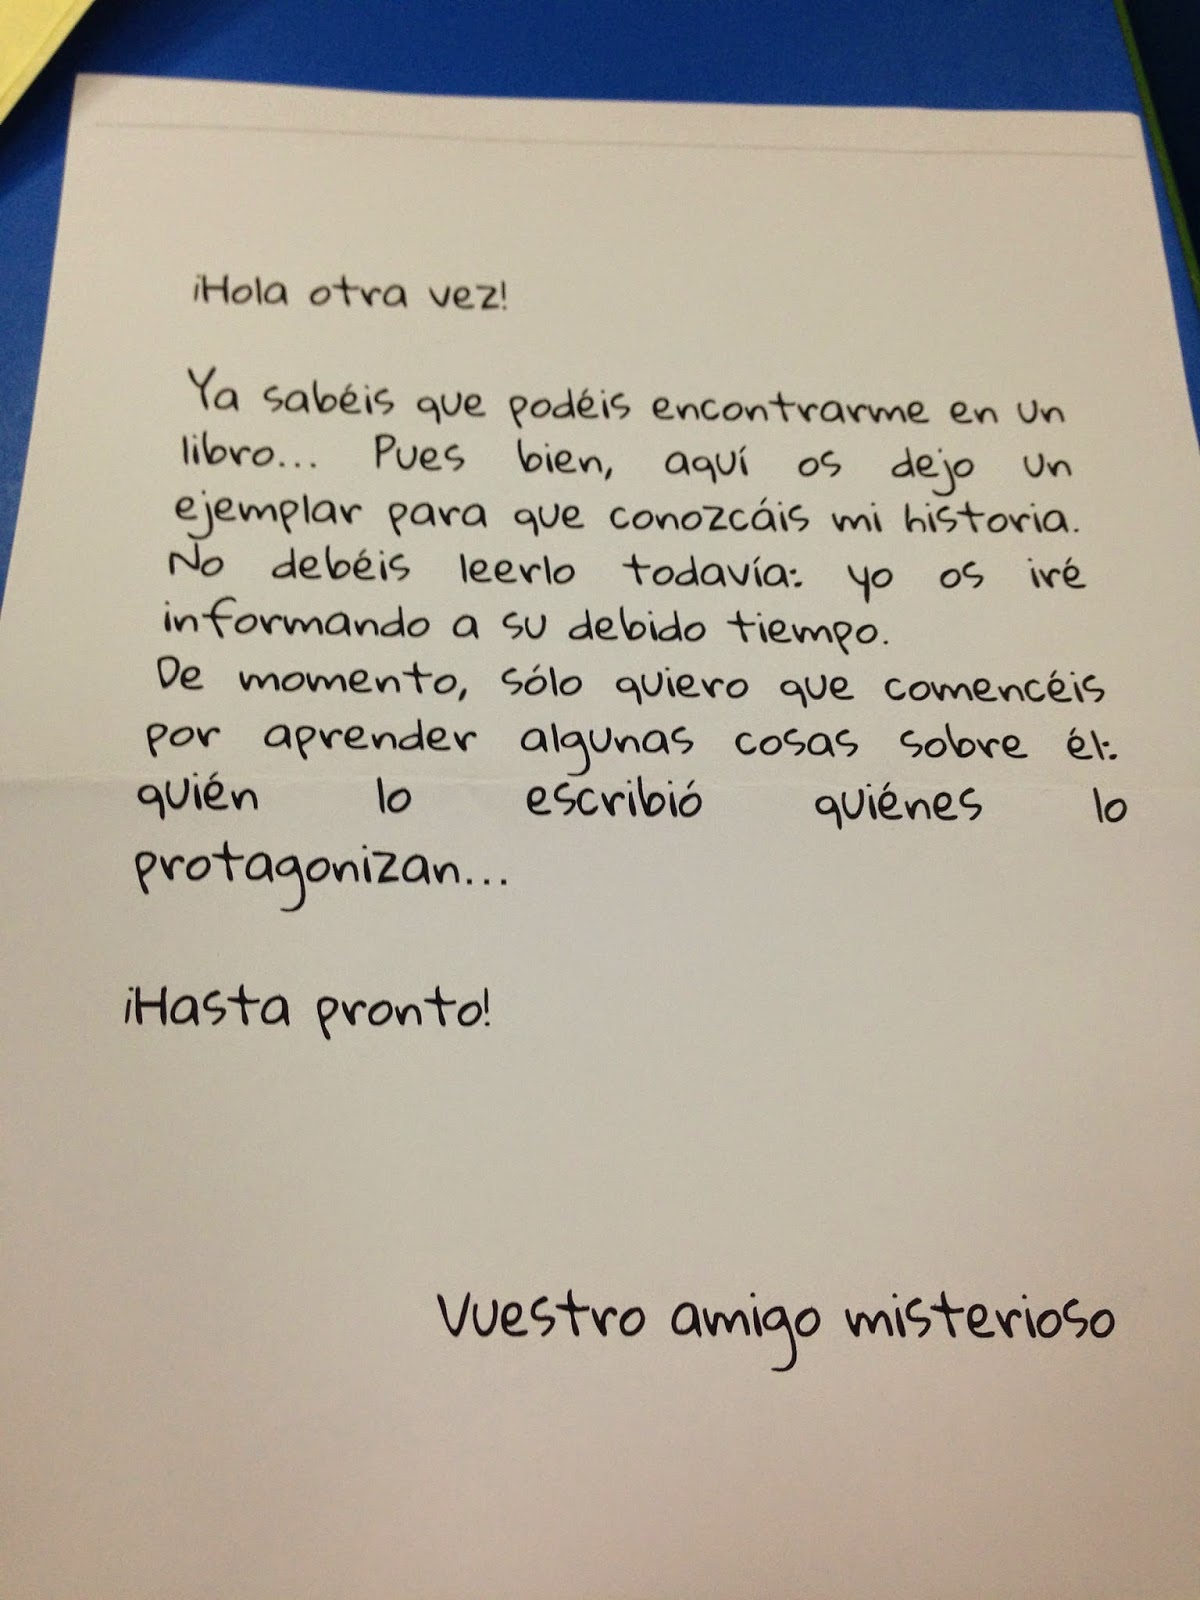 ¡Hola otra vez!
Ya sabéis que podéis encontrarme en un
libro... Pues bien, aquí os dejo un
ejemplar para que conozcáis mi historia.
No debéis leerlo todavía: yo os iré
informando a su debido tiempo.
De momento, sólo quiero que comencéis
por aprender algunas cosas sobre él:
quién lo escribió quiénes lo
protagonizan...
¡Hasta pronto!
Vuestro amigo misterioso